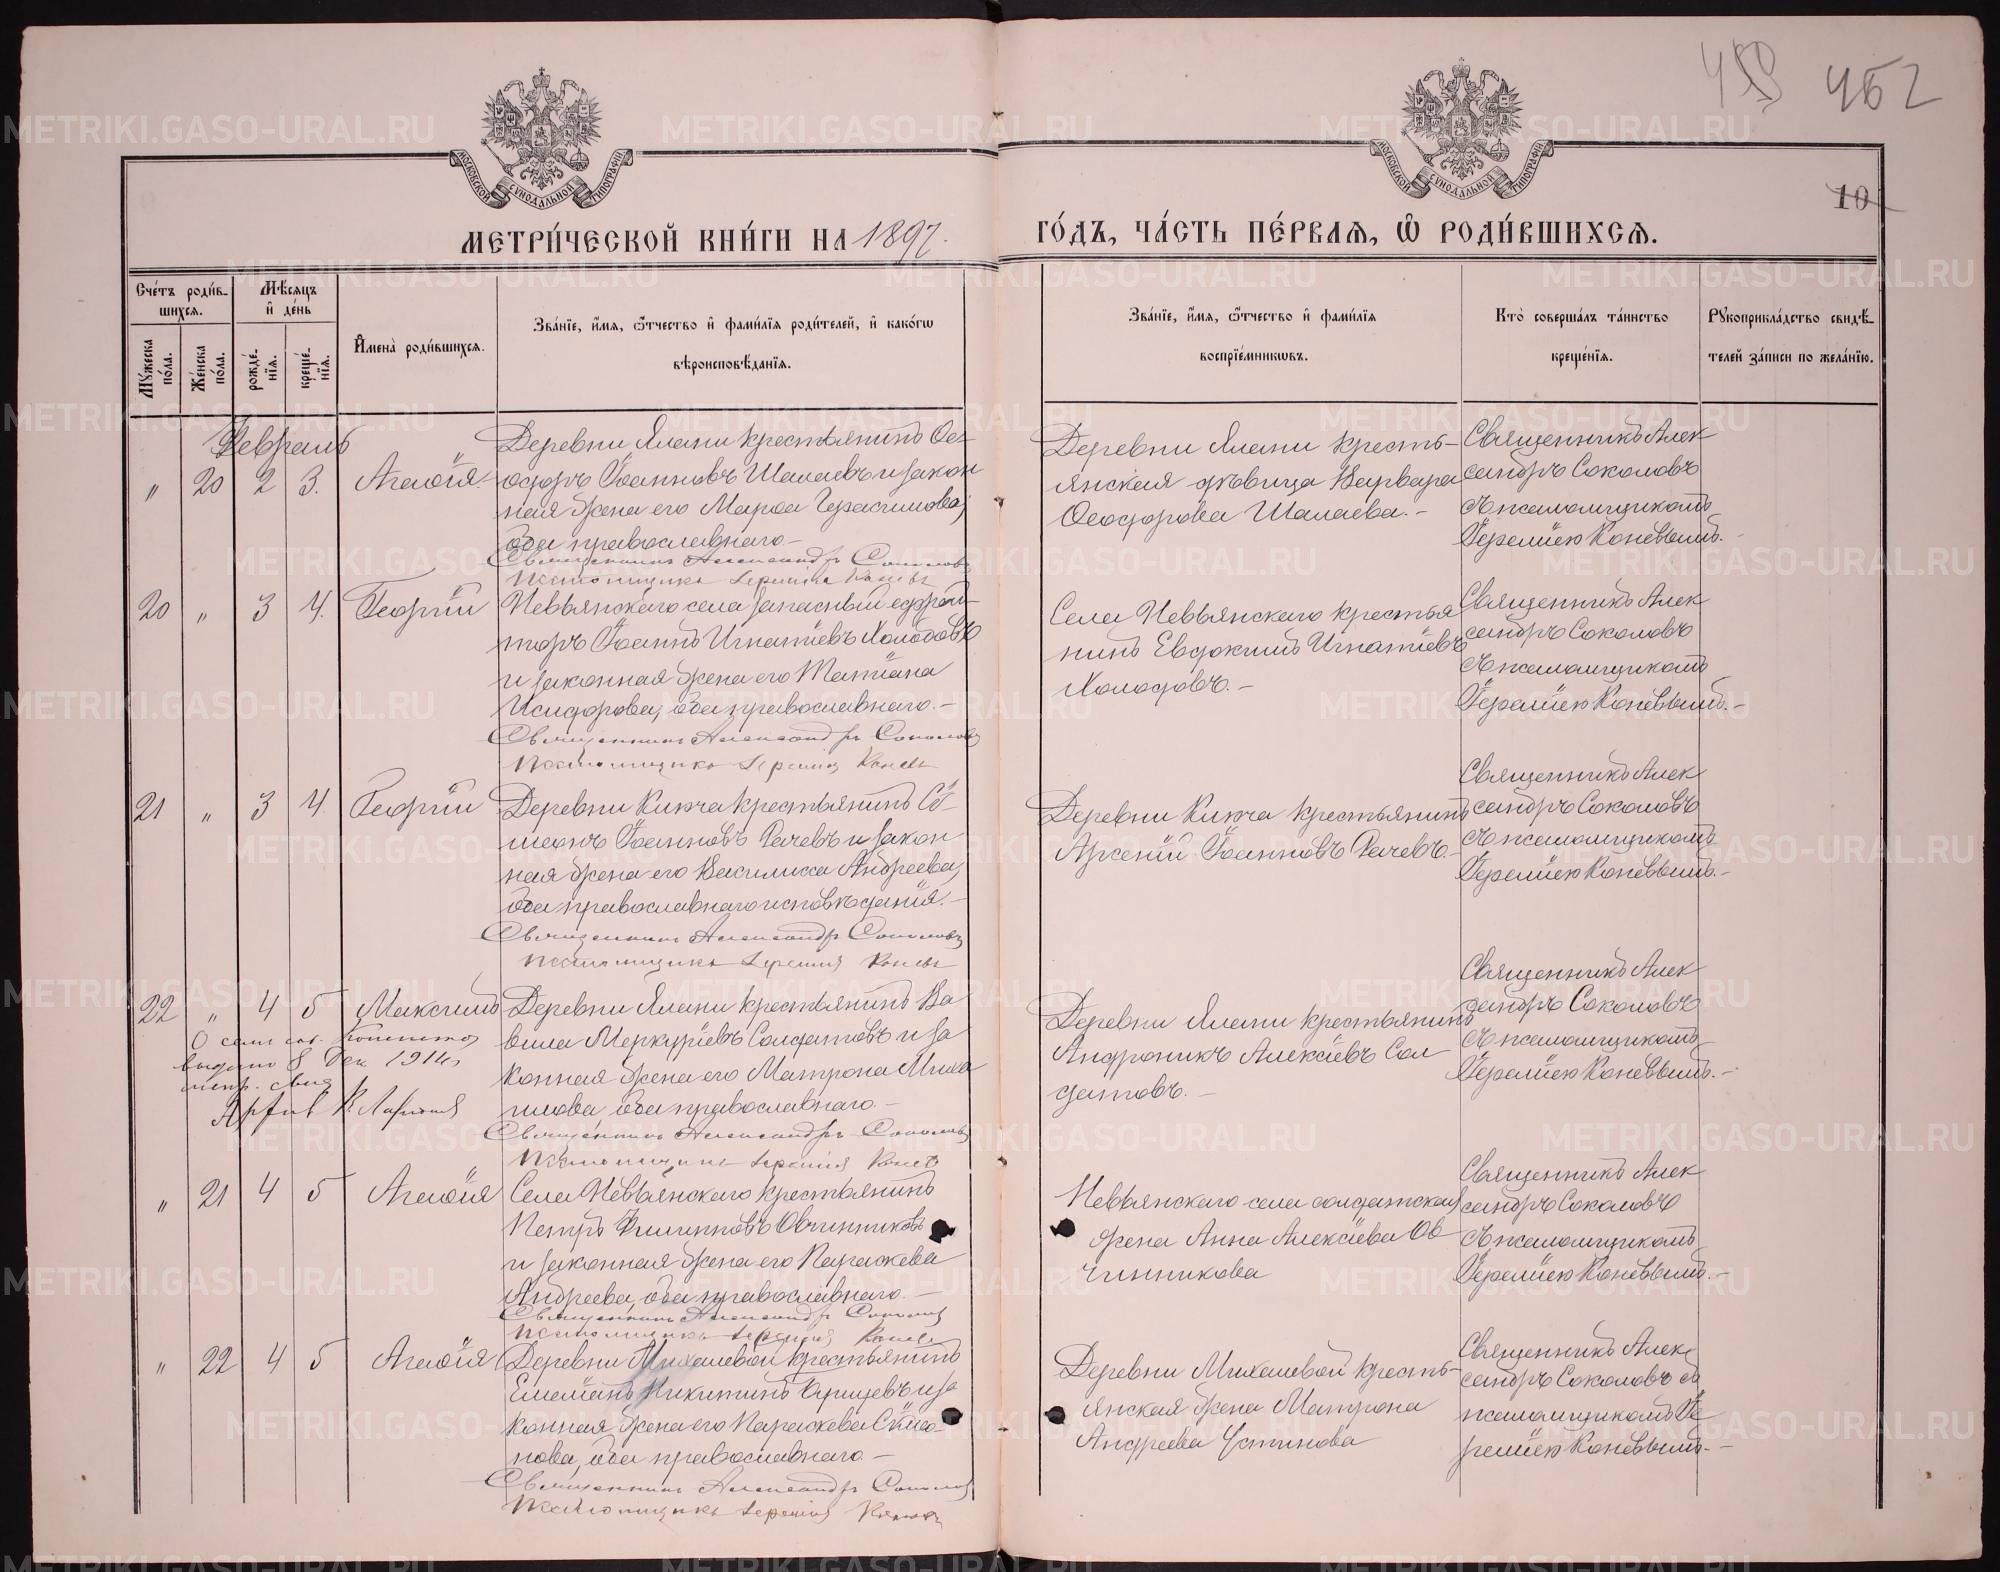 459 452
МОСКОВСКОЙ СѴНОДАЛЬНОЙ ТИПОГРАФІИ
МОСКОВСКОЙ СѴНОДАЛЬНОЙ ТИПОГРАФІИ
10
МЕТРИ́ЧЕСКОЙ КНИ́ГИ НА 1897.
ГО́ДЪ, ЧА́СТЬ ПЕ́РВАѦ, Ѡ РОДИ́ВШИХСѦ.
Сче́тъ роди́в-
шихсѧ.
Мꙋ́жеска по́ла.
Же́нска по́ла.
Мѣ́сѧцъ
и́ де́нь
рожде́нїѧ.
креще́нїѧ.
И҆мена̀ роди́вшихсѧ.
Зва́нїе, и҆́мѧ, ѻ҆́тчество и҆ фами́лїѧ роди́телей, и҆ како́гѡ
вѣроисповѣ́данїѧ.
Зва́нїе, и҆́мѧ, ѻ҆́тчество и҆ фами́лїѧ
воспрїе́мникѡвъ.
Кто̀ соверша́лъ та́инство
креще́нїѧ.
Рꙋкоприкла́дство свидѣ́-
телей за́писи по жела́нїю.
Февраль
" 20 2 3. Агаѳія.
Деревни Ялани крестьянинъ Ѳе-
одоръ Іоанновъ Шалаевъ и закон
ная жена его Марѳа Герасимова,
оба православнаго.-
Священникъ Александръ Соколовъ
Псаломщикъ Іеремія Коневъ
Деревни Ялани кресть-
янская дѣвица Варвара
Ѳеодорова Шалаева.-
Священникъ Алек
сандръ Соколовъ
съ псаломщикомъ
Іереміею Коневымъ.-
20 " 3 4. Георгій
Невьянскаго села запасный ефрей-
торъ Іоаннъ Игнатіевъ Холодовъ
и законная жена его Татіана
Исидорова, оба православнаго.-
Священникъ Александръ Соколовъ
Псаломщикъ Іеремія Коневъ
Села Невьянскаго крестья
нинъ Евдокимъ Игнатіевъ
Холодовъ.-
Священникъ Алек
сандръ Соколовъ
съ псаломщикомъ
Іереміею Коневымъ.-
21 " 3 4. Георгій
Деревни Ключа крестьянинъ Сѵ-
меонъ Іоанновъ Рачевъ и закон
ная жена его Василисса Андреева,
оба православнаго исповѣданія.-
Священникъ Александръ Соколовъ
Псаломщикъ Іеремія Коневъ
Деревни Ключа крестьянинъ
Арсеній Іоанновъ Рачевъ.-
Священникъ Алек
сандръ Соколовъ
съ псаломщикомъ
Іереміею Коневымъ.-
22 " 4 5 Максимъ
О семъ
выдано 8 Дек 1914 г.
метр. свид
Деревни Ялани крестьянинъ Ва
вила Меркуріевъ Солдатовъ и за
конная жена его Матрона Миха
илова, оба православнаго.-
Священникъ Александръ Соколовъ
Псаломщикъ Іеремія Коневъ
Деревни Ялани крестьянинъ
Андроникъ Алексіевъ Сол
датовъ.-
Священникъ Алек
сандръ Соколовъ
съ псаломщикомъ
Іереміею Коневымъ.-
" 21 4 5 Агаѳія
Села Невьянскаго крестьянинъ
Петръ Филипповъ Овчинниковъ
и законная жена его Параскева
Андреева, оба православнаго.-
Священникъ Александръ Соколовъ
Псаломщикъ Іеремія Коневъ
Невьянскаго села солдатская
жена Анна Алексіева Ов
чинникова
Священникъ Алек
сандръ Соколовъ
съ псаломщикомъ
Іереміею Коневымъ.-
" 22 4 5 Агаѳія
Деревни Михалевой крестьянинъ
Емеліанъ Никитинъ и за
конная жена его Параскева Сѵмео-
нова, оба православнаго.-
Священникъ Александръ Соколовъ
Псаломщикъ Іеремія Коневъ
Деревни Михалевой кресть-
янская жена Матрона
Андреева Устинова
Священникъ Алек
сандръ Соколовъ съ
псаломщикомъ Іе
реміею Коневымъ.-
METRIKI.GASO-URAL.RU